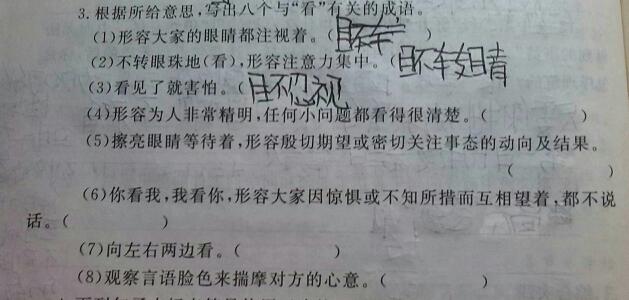 3.根据所给意思,写出八个与“看”有关的成语。
(1)形容大家的眼睛都注视着。( )
(2)不转眼珠地(看),形容注意力集中。(目不车专目青
(3)看见了就害怕。(目不忍视
(4)形容为人非常精明,任何小问题都看得很清楚。( )
(5)擦亮眼睛等待着,形容殷切期望或密切关注事态的动向及结果。
( )
(6)你看我,我看你,形容大家因惊惧或不知所措而互相望着,都不说
话。( )
(7)向左右两边看。( )
(8)观察言语脸色来揣摩对方的心意。( )